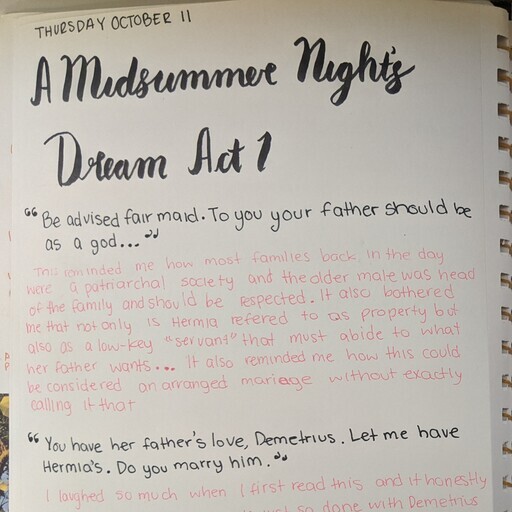 THURSDAY OCTOBER 11
A Midsummer Night's
Dream Act 1
"Be advised fair maid. To you your father should be
as a god..."
This reminded me how most families back in the day
were a patriarchal society and the older male was head
of the family and should be respected. It also bothered
me that not only is Hermia refered to as property but
also as a low-key "servant" that must abide to what
her father wants... It also reminded me how this could
be considered an arranged mariage without exactly
calling it that
"You have her father's love, Demetrius. Let me have
Hermia's. Do you marry him."
I laughed so much when I first read this and it honestly
just so done with Demetrius